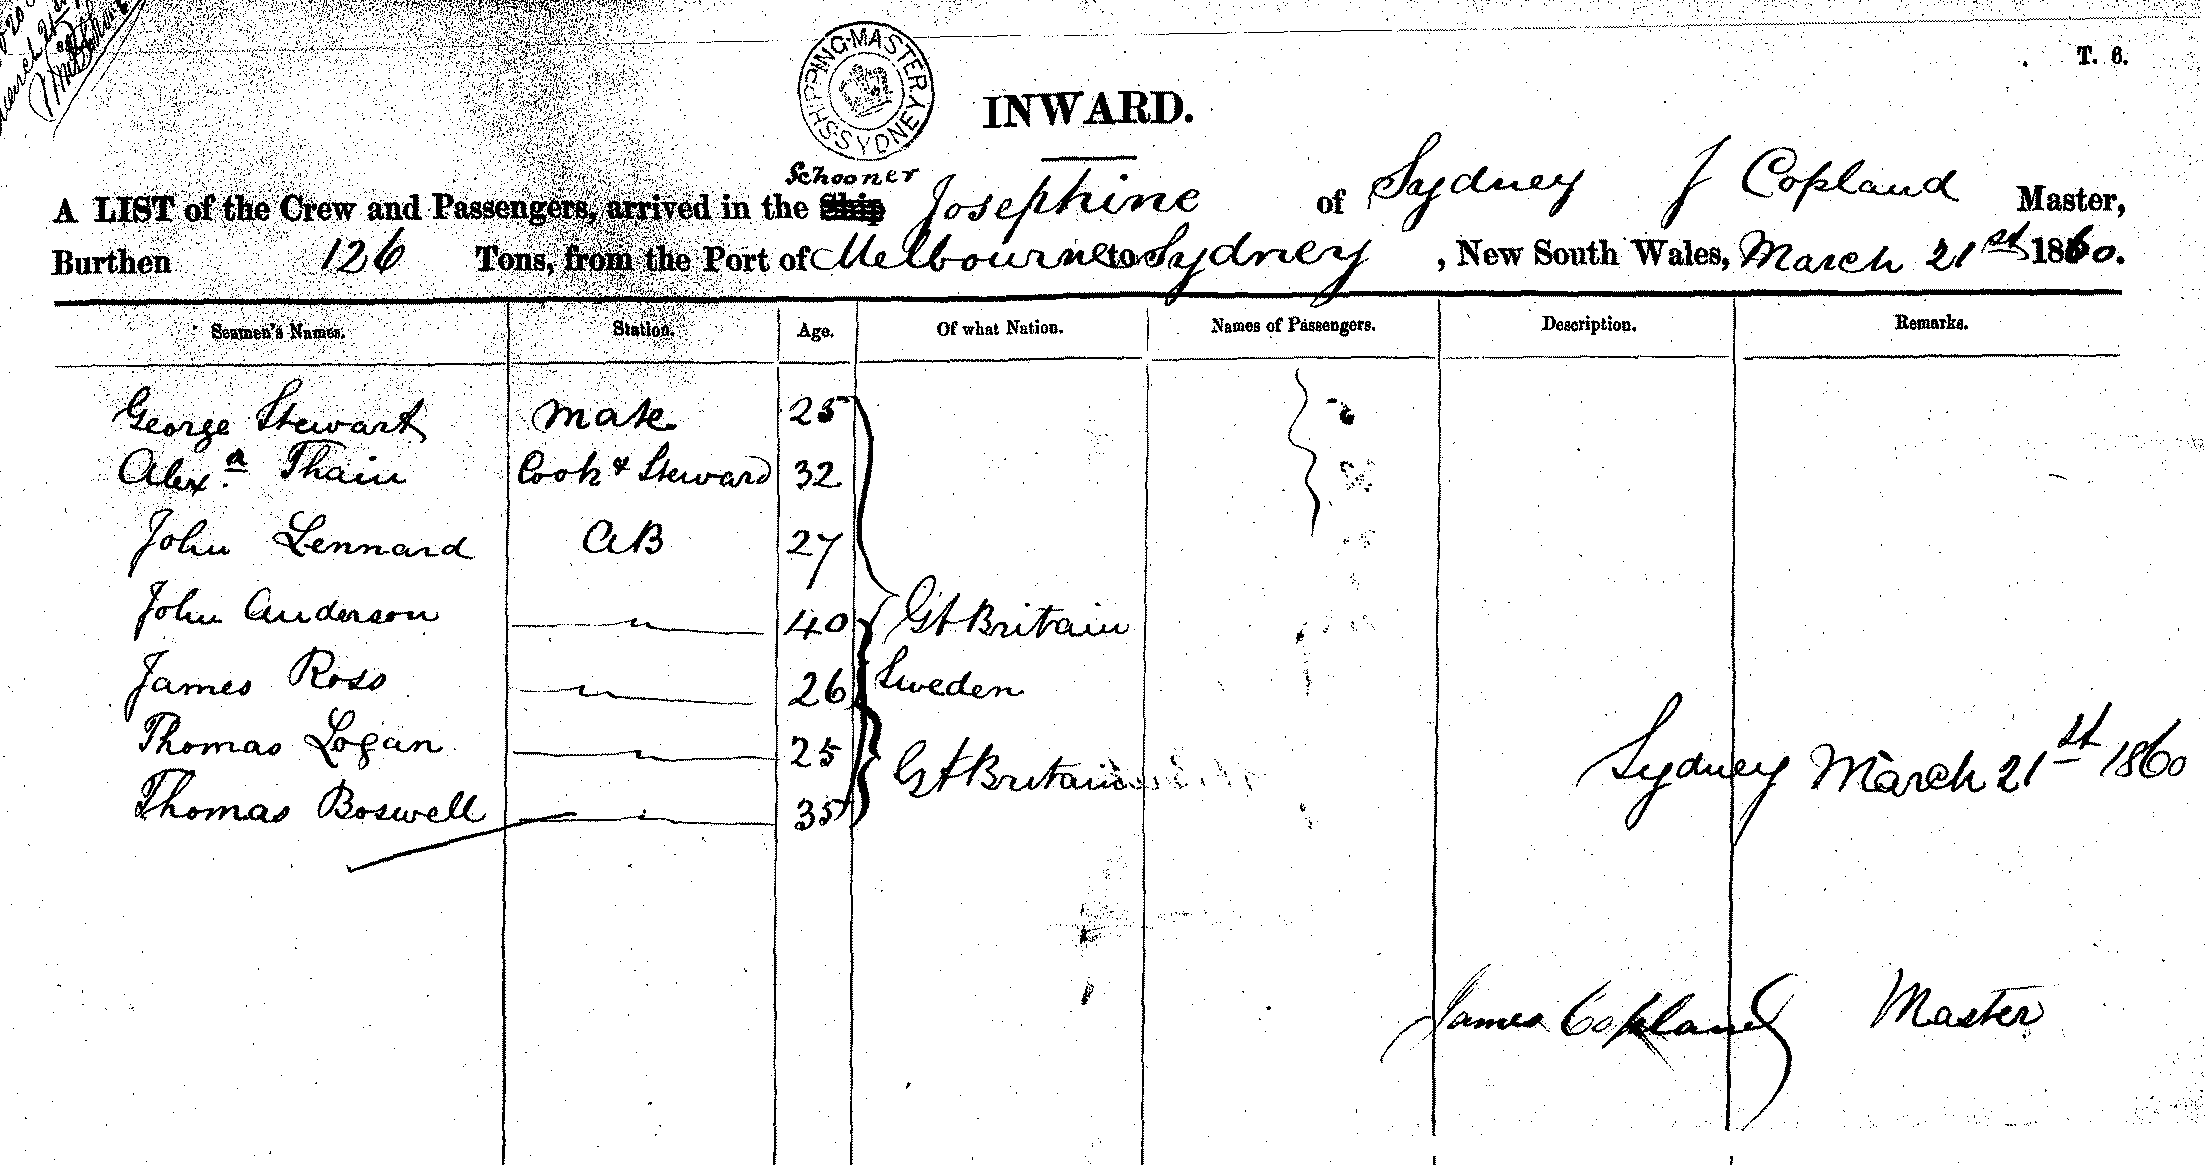 March 21st
T. 6.
SHIPPING·MASTER SYDNEY
INWARD.
Schooner
A LIST of the Crew and Passengers, arrived in the Ship Josephine of Sydney J Copland Master,
Burthen 126 Tons, from the Port of Melbourne to Sydney, New South Wales, March 21st 1860.
Seamen's Names. Station. Age. Of what Nation. Names of Passengers. Description. Remarks.
George Stewart Mate 25
Alexa. Thain Cook & Steward 32
John Lennard AB 27
John Anderson " 40 Gt Britain
James Ross " 26 Sweden
Thomas Logan " 25
Thomas Boswell " 35 Gt Britain
Sydney March 21st 1860
James Copland Master